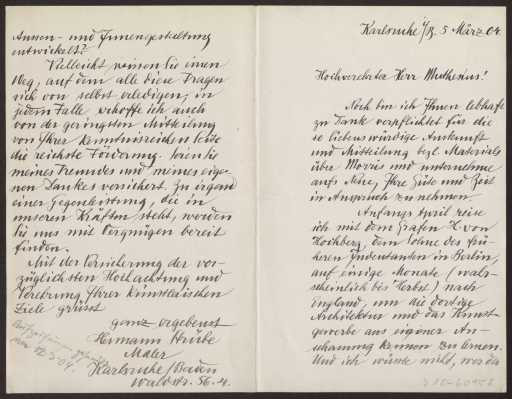 Karlsruhe i/B. 5 März 04.
Hochverehrter Herr Muthesius!
Noch bin ich Ihnen lebhaft
zu Dank verpflichtet für die
so liebenswürdige Auskunft
und Mitteilung bezl. Materials
über Morris und unternehme
aufs Neue, Ihre Güte und Zeit
in Anspruch zu nehmen.
Anfangs April reise
ich mit dem Grafen H. von
Hochberg, dem Sohne des frü-
heren Indentanten in Berlin,
auf einige Monate (wahr-
scheinlich bis Herbst) nach
England, um die dortige
Architektur und das Kunst-
gewerbe aus eigener An-
schauung kennen zu lernen.
Und ich würde nicht, wer da
Aussen- und Innengestaltung
entwickelt?
Vielleicht weisen Sie einen
Weg, auf dem alle diese Fragen
sich von selbst erledigen; in
jedem Falle erhoffte ich auch
von der geringsten Mitteilung
von Ihrer kenntnisreichen Seite
die reichste Förderung. Seien Sie
meines Freundes und meines eige-
nen Dankes versichert. Zu irgend
einer Gegenleistung, die in
unseren Kräften steht, werden
Sie uns mit Vergnügen bereit
finden.
Mit der Versicherung der vor-
züglichsten Hochachtung und
Verehrung Ihrer künstlerischen
Ziele grüsst
ganz ergebenst
Hermann
Maler
Karlsruhe/Baden
Waldstr. 56. 4.